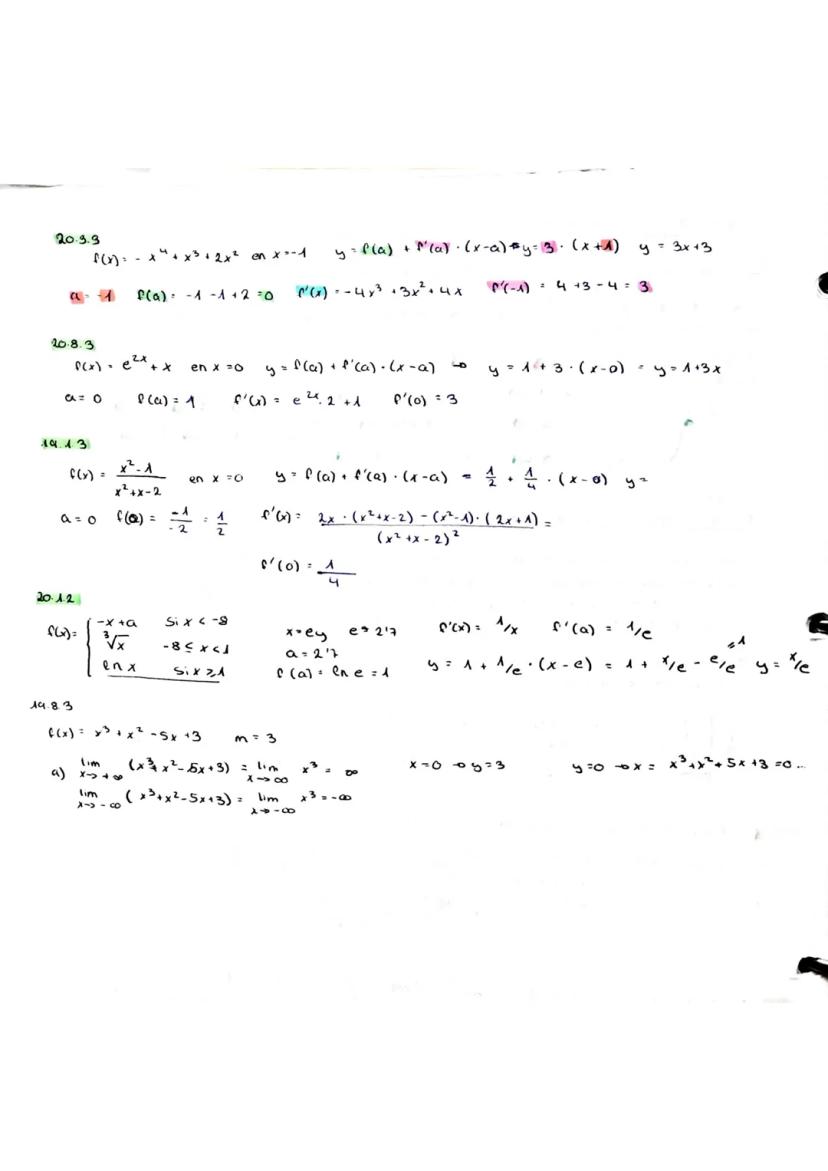 20.9.9
f(x) = - x⁴ + x³ + 2x² en x=-1 y = f(a) + f'(a) · (x-a) y= 3 · (x+1) y = 3x+3
a = -1 f(a) = -1 -1 +2 = 0 f'(x) = -4x³ +3x² + 4x f'(-1) = 4 +3 - 4 = 3
20.8.3
f(x) = e²ˣ + x en x=0 y = f(a) + f'(a) · (x-a) → y = 1 + 3 · (x-0) = y = 1+3x
a = 0 f(a) = 1 f'(x) = e²ˣ · 2 + 1 f'(0) = 3
19.1.3
f(x) = x²-1 / x²+x-2 en x=0 y = f(a) + f'(a) · (x-a) = 1/2 + 1/4 · (x-0) y=
a = 0 f(0) = -1/-2 = 1/2 f'(x) = 2x · (x²+x-2) - (x²-1) · (2x+1) / (x²+x-2)² =
f'(0) = 1/4
20.1.2
f(x) = { -x+a si x < -8
∛x -8 ≤ x < 1
ln x si x ≥ 1
x = ey e = 2'7 f'(x) = 1/x f'(a) = 1/e
a = 2'7
f(a) = ln e = 1 y = 1 + 1/e · (x-e) = 1 + x/e - e/e =1 y = x/e
19.8.3
f(x) = x³ + x² -5x +3 m = 3
a) lim x→+∞ (x³+x²-5x+3) = lim x→∞ x³ = ∞ x=0 → y=3 y=0 → x = x³+x²+5x+3 =0...
lim x→-∞ (x³+x²-5x+3) = lim x→-∞ x³ = -∞